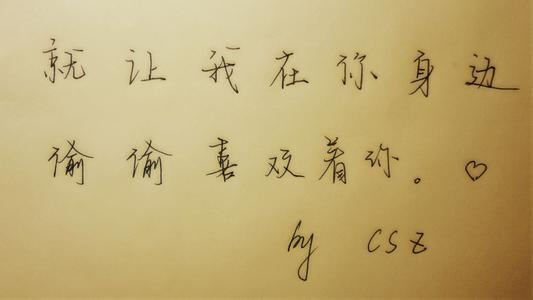 就让我在你身边
偷偷喜欢着你。♡
by CSZ